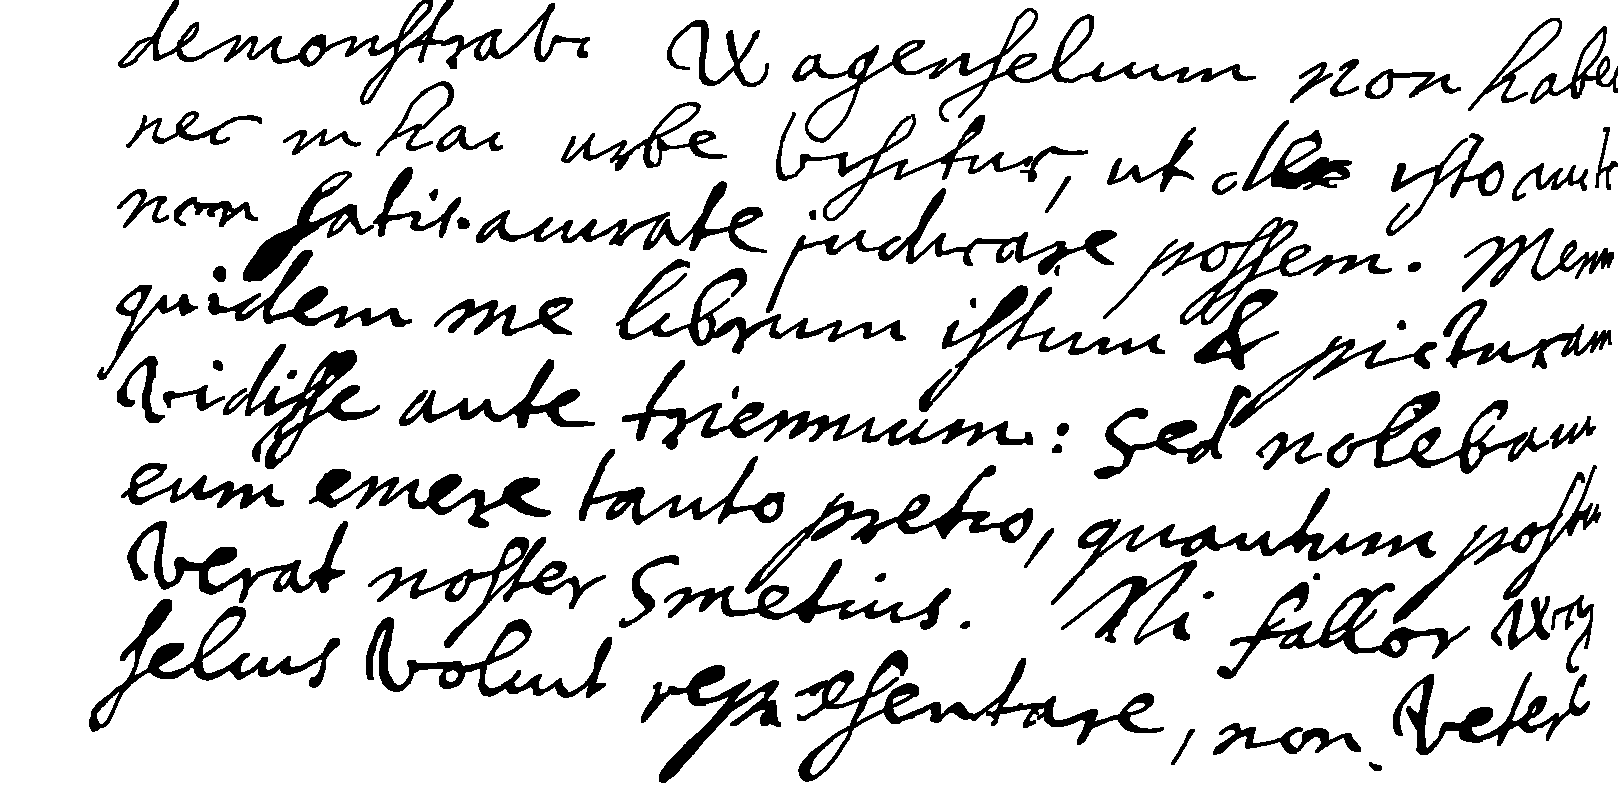 demonſtravi Wagenſelium non habe
nec in hac urbe viſitur, ut de iſto
non ſatis accurate judicare poſſem.
quidem me librum iſtum & picturam
vidiſſe ante triennium: Sed nolebam
eum emere tanto pretio, quantum poſtu
verat noſter Smetius. Ni fallor Wag
ſelius voluit repræſentare, non veter